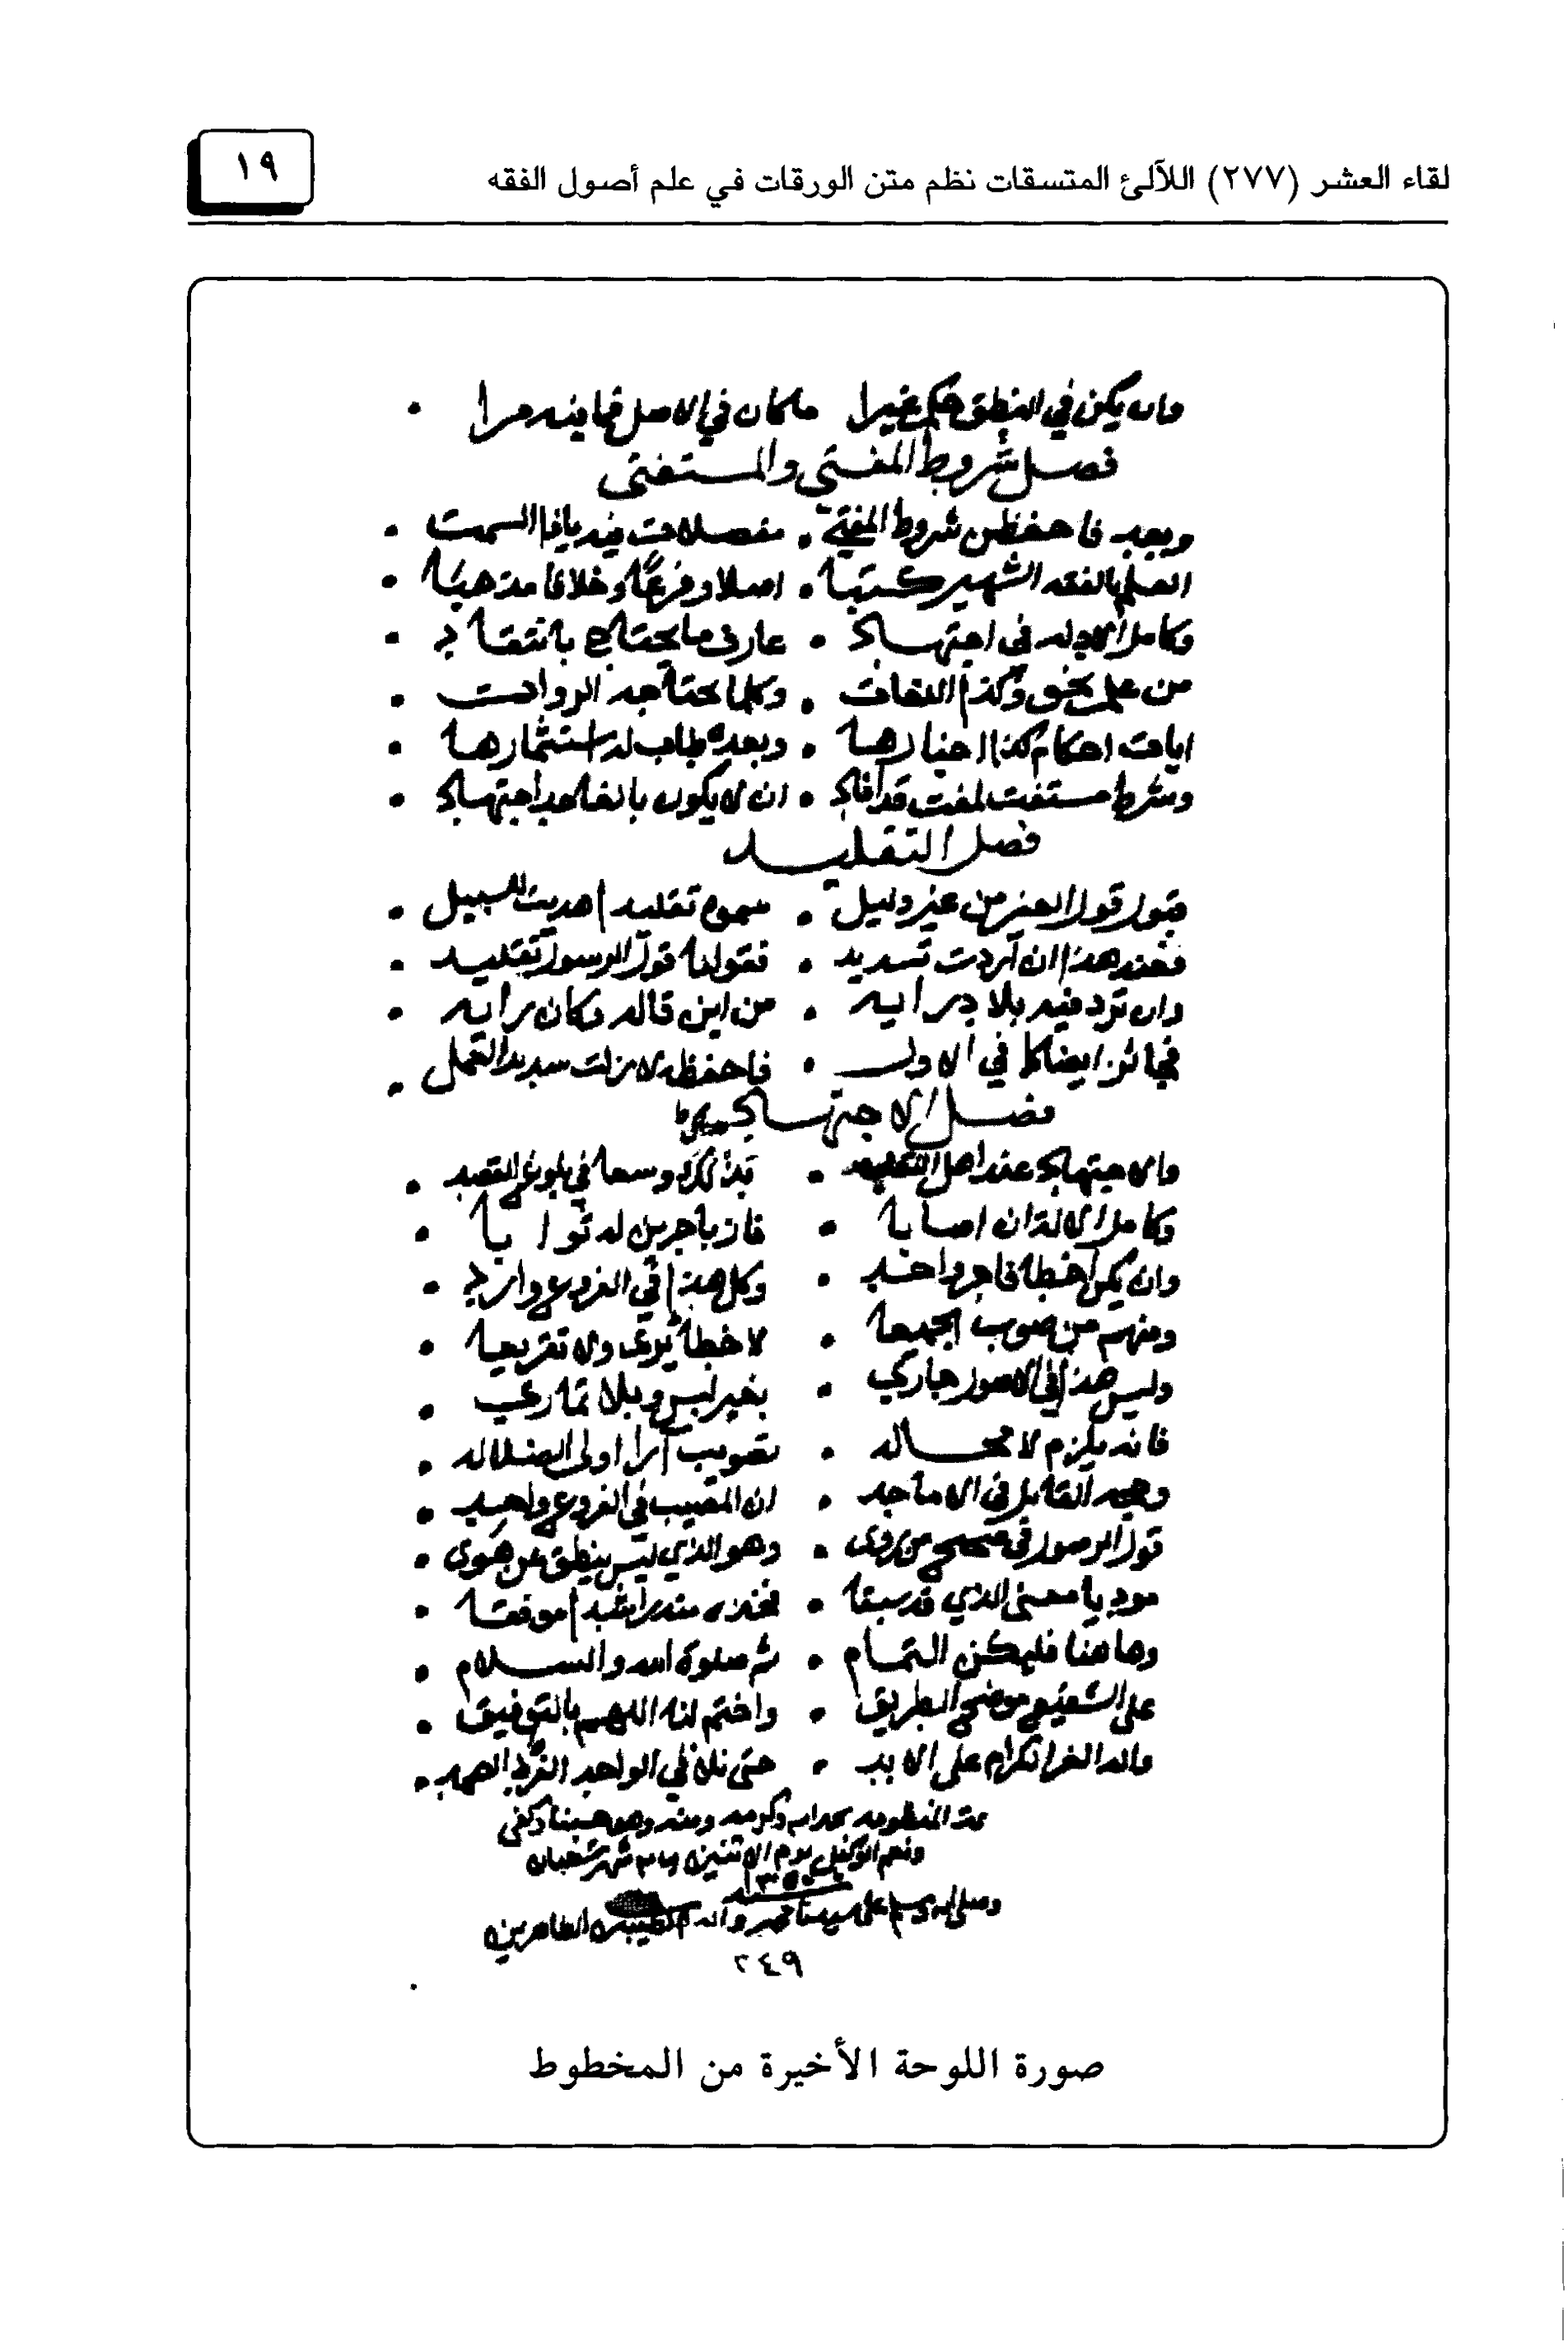 لقاء العشر (٢٧٧) اللآلئ المتسقات نظم متن الورقات في علم أصول الفقه
١٩
وان يكن في النطق حكم غيرا ماكان في الاصل فما فيه مرا
فصل شروط المفتي والمستفتى
وبعد فاحفظن شروط المفتي مفصلات فيه يا ذا السمت
العلم بالفقه الشهير كتبا اصلا وفرعًا وخلافا مذهبًا
وكامل الادله في اجتهاد عارف ما يحتاج بانتقاد
من علم نحو وكذا اللغات وكلما يحتاجه الروات
ايات احكام كذا اخبارها وبعده طاب له استثمارها
وشرط مستفت لمفت قد افاد ان لا يكون بالغا حد اجتهاد
فصل التقليد
قبول قول الغير من غير دليل سموه تقليدا هديت للسبيل
فعند هذا ان أردت تسديد فقولنا قول الرسول تقليد
وان ترد فيه بلا درايه من اين قاله فكان رايه
فجائز ايضا كما في الاول فاحفظه لا زلت سديد العمل
فصل الاجتهاد
والاجتهاد عند اهل بذلك وسعا في بلوغ القصد
وكامل الالة ان اصابا فاز باجرين له ثوابا
وان يكن اخطا فاجر واحد وكل هذا في الفروع وارد
ومنهم من صوب الجميعا لا خطا يرى ولا تقريعا
وليس هذا في الاصول جاري بغير لبس وبلا تماري
فانه يلزم لا محاله تصويب آرا اولى الضلاله
وحجة القائل في الاماجد ان المصيب في الفروع واحد
قول الرسول في صحيح من روى وهو الذي ليس ينطق عن هوى
مود يا معنى الذي قد سبقا فخذه منه راشدا موفقا
وهاهنا فليكن التمام ثم صلوة الله والسلام
على الشفيع موضح الطريق واختم لنا اللهم بالتوفيق
واله الغر الكرام على الابد حتى نلاقي الواحد الفرد الصمد
تمت المنظومه بحمد الله وكرمه ومنه وهو حسبنا وكفى
ونعم الوكيل يوم الاثنين شهر شعبان
وصلى الله وسلم على سيدنا محمد واله الطيبين الطاهرين
٢٤٩
صورة اللوحة الأخيرة من المخطوط